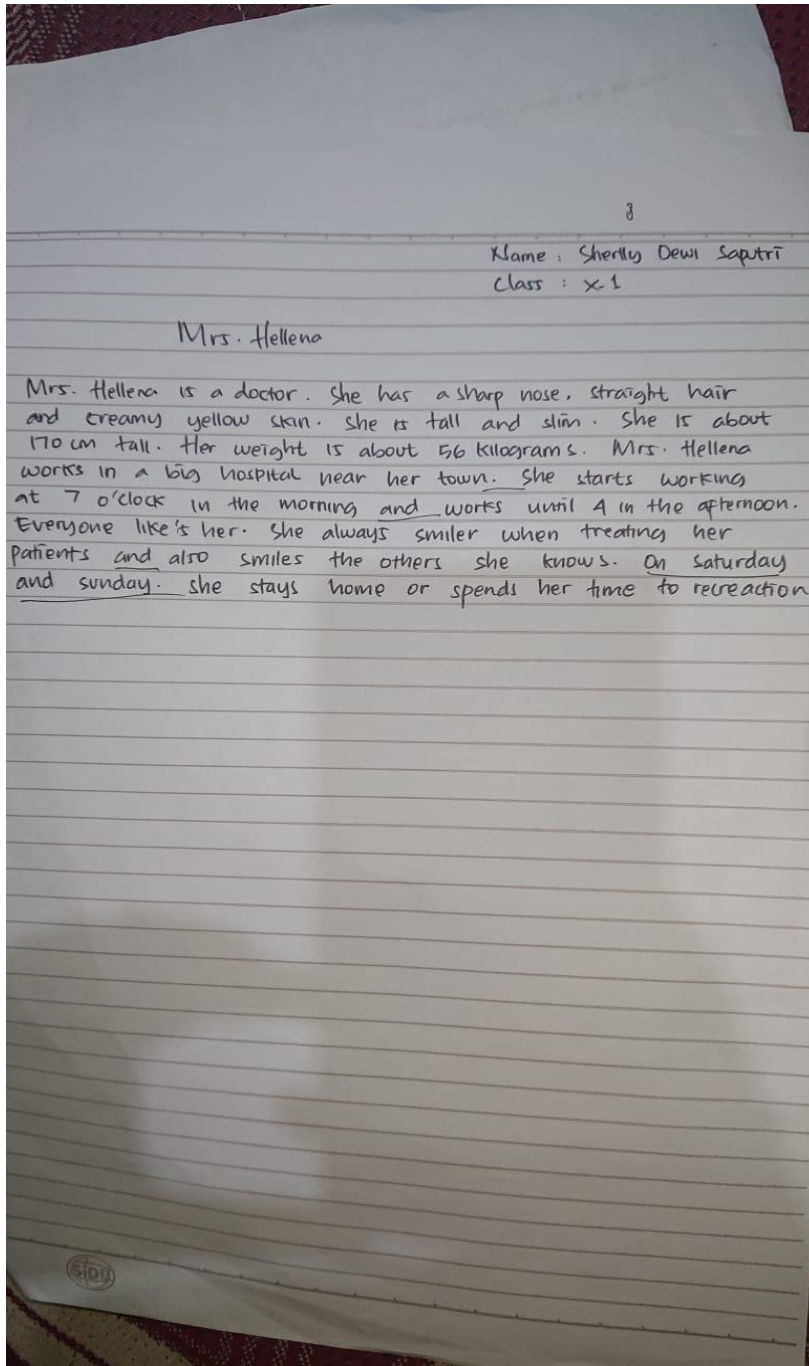 8
Name : Sherlly Dewi Saputri
Class : X-1
Mrs. Hellena
Mrs. Hellena is a doctor. She has a sharp nose, straight hair
and creamy yellow skin. She is tall and slim. She is about
170 cm tall. Her weight is about 56 kilograms. Mrs. Hellena
works in a big hospital near her town. She starts working
at 7 o'clock in the morning and works until 4 in the afternoon.
Everyone like's her. She always smiler when treating her
patients and also smiles the others she knows. On saturday
and sunday. she stays home or spends her time to recreaction
SiDU